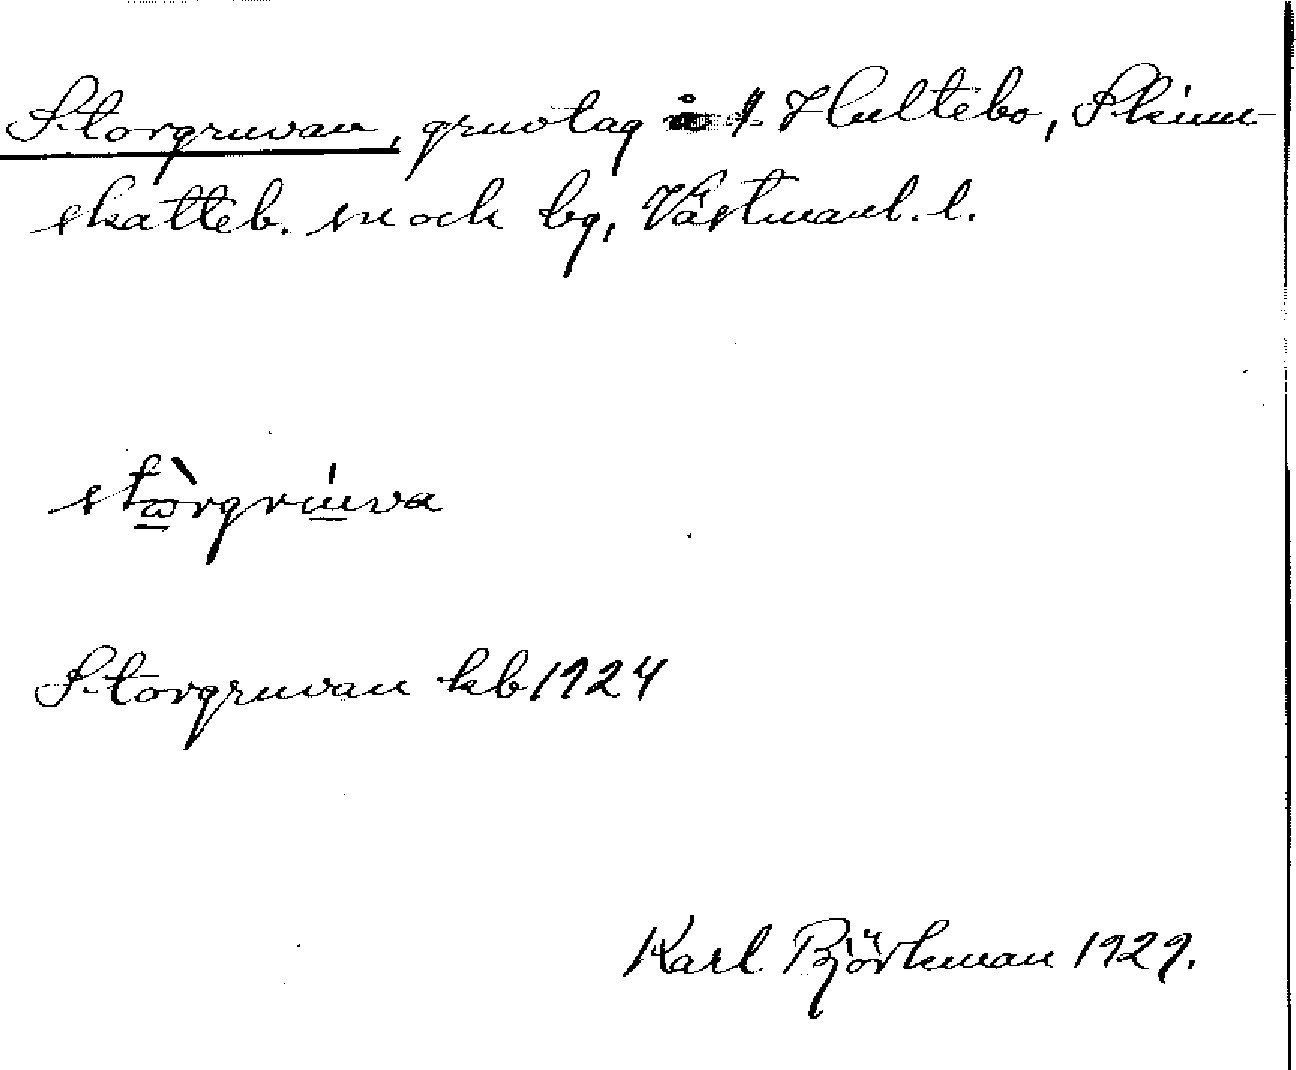 Storgruvan, gruvlag å f. Hultebo, Skinn-
skatteb. sn och bg, Västmanl. l.
stὼrgrúva
Storgruvan kb 1924
Karl Björkman 1929.